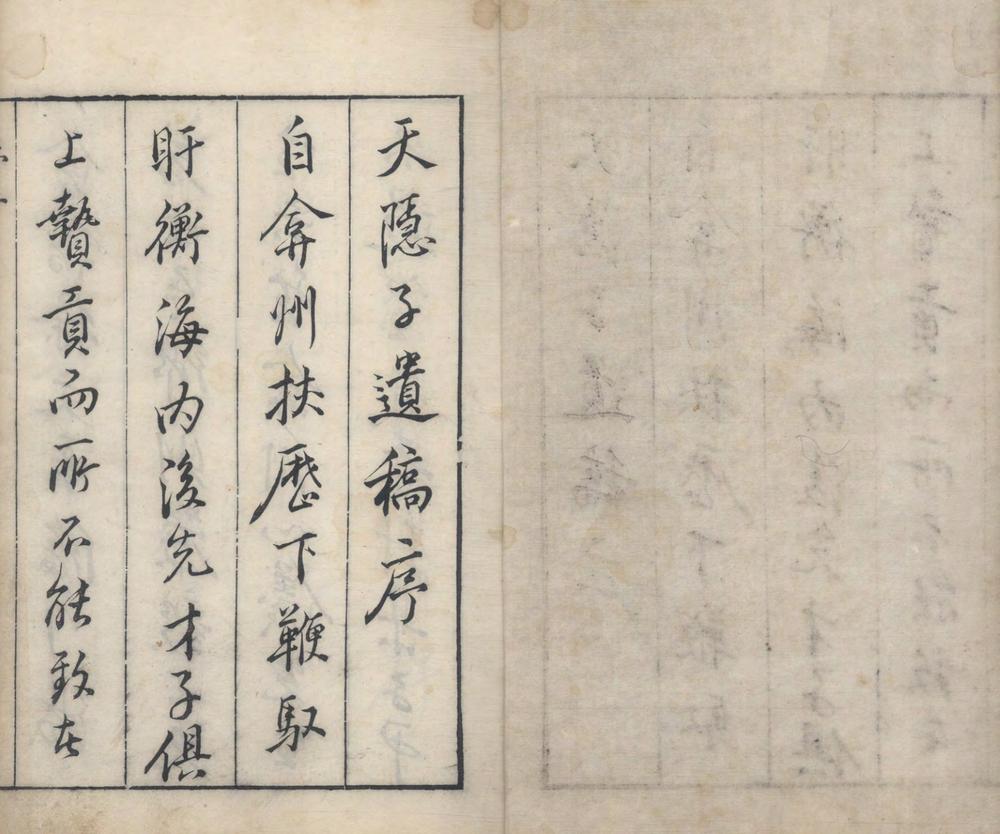 天隱子遺稿序
自弇州扶歷下鞭馭
盱衡海内後先才子俱
上贄貢而所不能致在